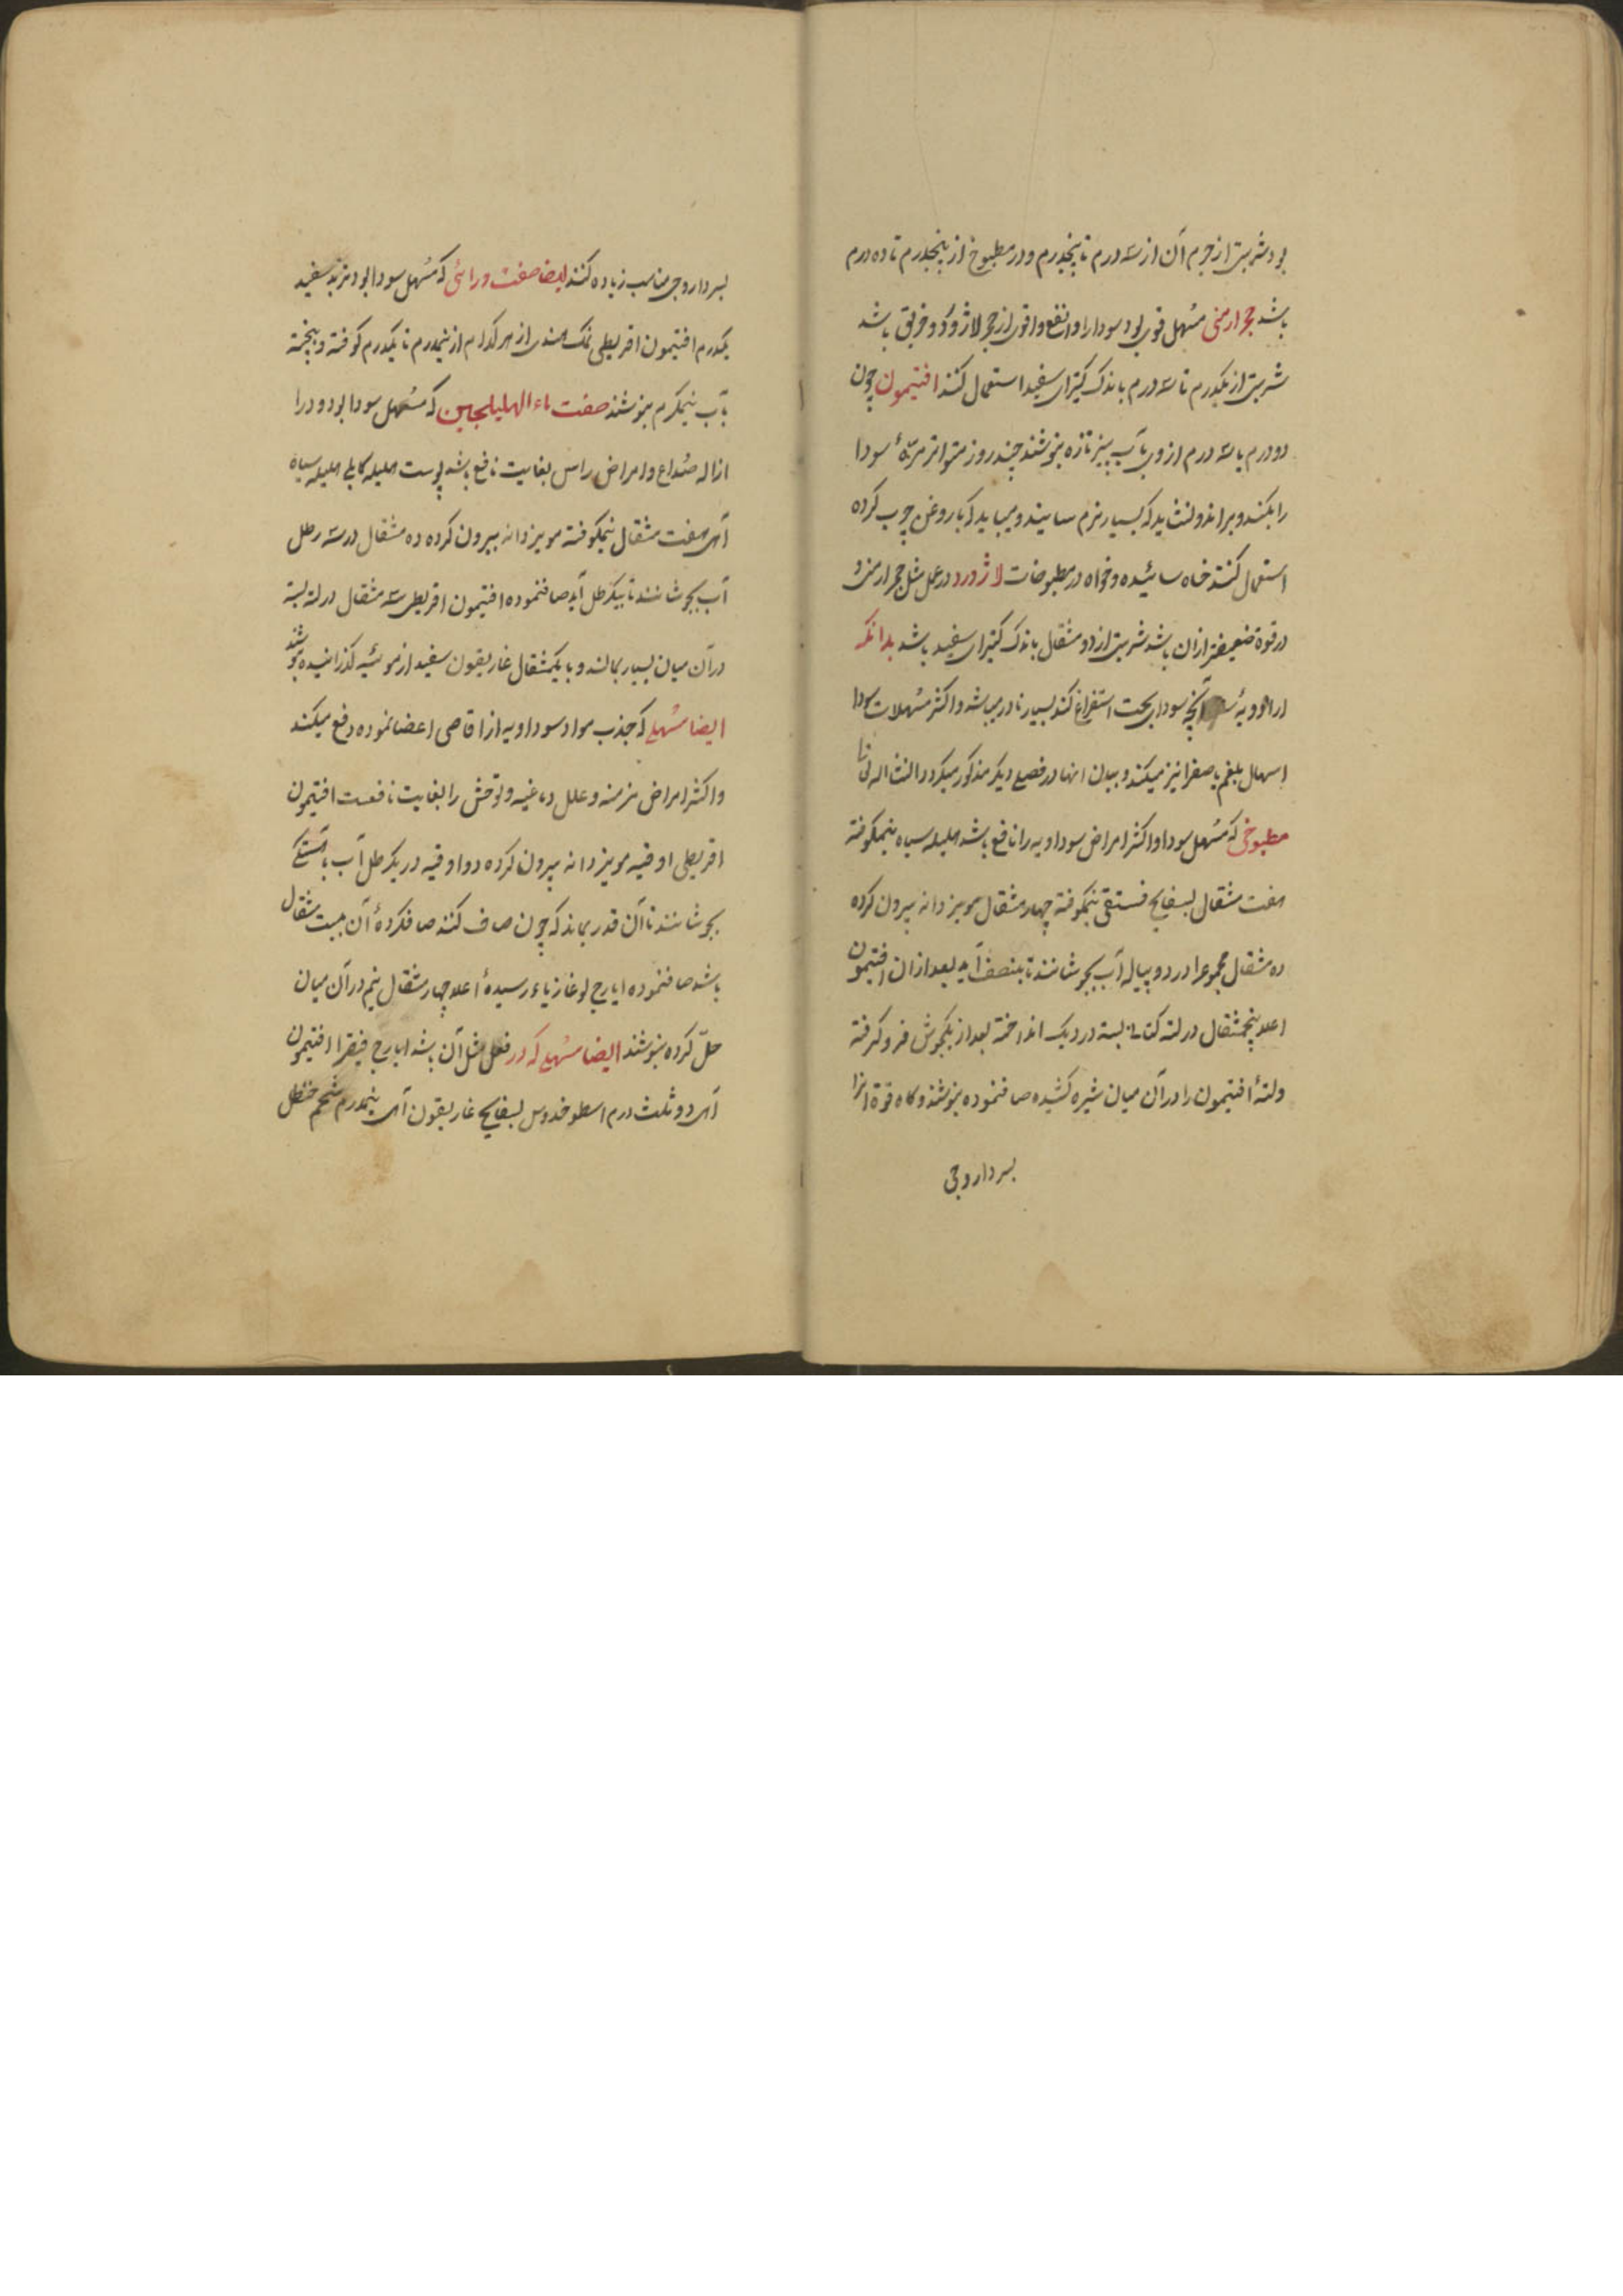 بود شربتی از جرم آن از سه درم تا پنجدرم و در مطبوخ از پنجدرم تا ده درم
باشد حجر ارمنی مسهل قوی بود سودا را و انفع و اقوی از حجر لاژورد و خربق باشد
شربتی از یکدرم تا سه درم با اندک کتیرای سفید استعمال کنند افتیمون چون
دو درم یا سه درم از وی بآب پنیر تازه بنوشند چند روز متواتر مرّهٔ سودا
را بکند و براند و نشاید که بسیار نرم سایند و میباید که با روغن چرب کرده
استعمال کنند خاه سائیده و خواه در مطبوخات لاژورد در عمل مثل حجر ارمنی و
در قوة ضعیفتر ازان باشد شربتی از دو مثقال باندک کتیرای سفید باشد بدانکه
از ادویهٔ آنچه سودای بحت استفراغ کند بسیار نادر میباشد و اکثر مسهلات سودا
اسهال بلغم یا صفرا نیز میکند و بیان انها در فصلی دیکر مذکور میکردد انشااله تعالی
مطبوخی که مسهل سودا و اکثر امراض سوداویه را نافع باشد هلیله سیاه نیمکوفته
هفت مثقال بسفایج فستقی نیمکوفته چهار مثقال مویز دانه بیرون کرده
ده مثقال مجموع را در دو پیاله آب بجوشانند تا بنصف آید بعد ازان افتیمون
اعلا پنجمثقال در لته کتان بسته در دیک انداخته بعد از یکجوش فرو کرفته
و لتهٔ افتیمون را در آن میان شیره کشیده صاف نموده بنوشند و کاه قوة انرا
بسرداروجی
بسرداروجی مناسب زیاده کنند ایضا صفت ورائی که مسهل سودا بود تربد سفید
یکدرم افتیمون اقریطی نمک هندی از هر کدام از نیمدرم تا یکدرم کوفته و بیخته
بآب نیمکرم بنوشند صفت ماء الهلیلجین که مسهل سودا بود و در
ازاله صداع و امراض راس بغایت نافع باشد پوست هلیله کابلی هلیله سیاه
آهی هفت مثقال نیمکوفته مویز دانه بیرون کرده ده مثقال در سه رطل
آب بجوشانند تا بیکرطل آید صاف نموده افتیمون اقریطی سه مثقال در لته بسته
در آن میان بسیار بمالند و با یکمثقال غاریقون سفید از موئینه کذرانیده بنوشند
ایضا مسهلی که جذب مواد سوداویه از اقاصی اعضا نموده دفع میکند
و اکثر امراض مزمنه و علل دماغیه و توحش را بغایت نافعست افتیمون
اقریطی اوقیه مویز دانه بیرون کرده دو اوقیه در یکرطل آب بآهستکی
بجوشانند تا آن قدر بماند که چون صاف کنند صاف کردهٔ آن بیست مثقال
باشد صاف نموده ایارج لوغازیاء رسیدهٔ اعلا چهار مثقال نیم در آن میان
حلّ کرده بنوشند ایضا مسهلی که در فعل مثل آن باشد ایارج فیقرا افتیمون
آهی دو ثلث درم اسطوخدوس بسفایج غاریقون آهی نیمدرم شحم حنظل